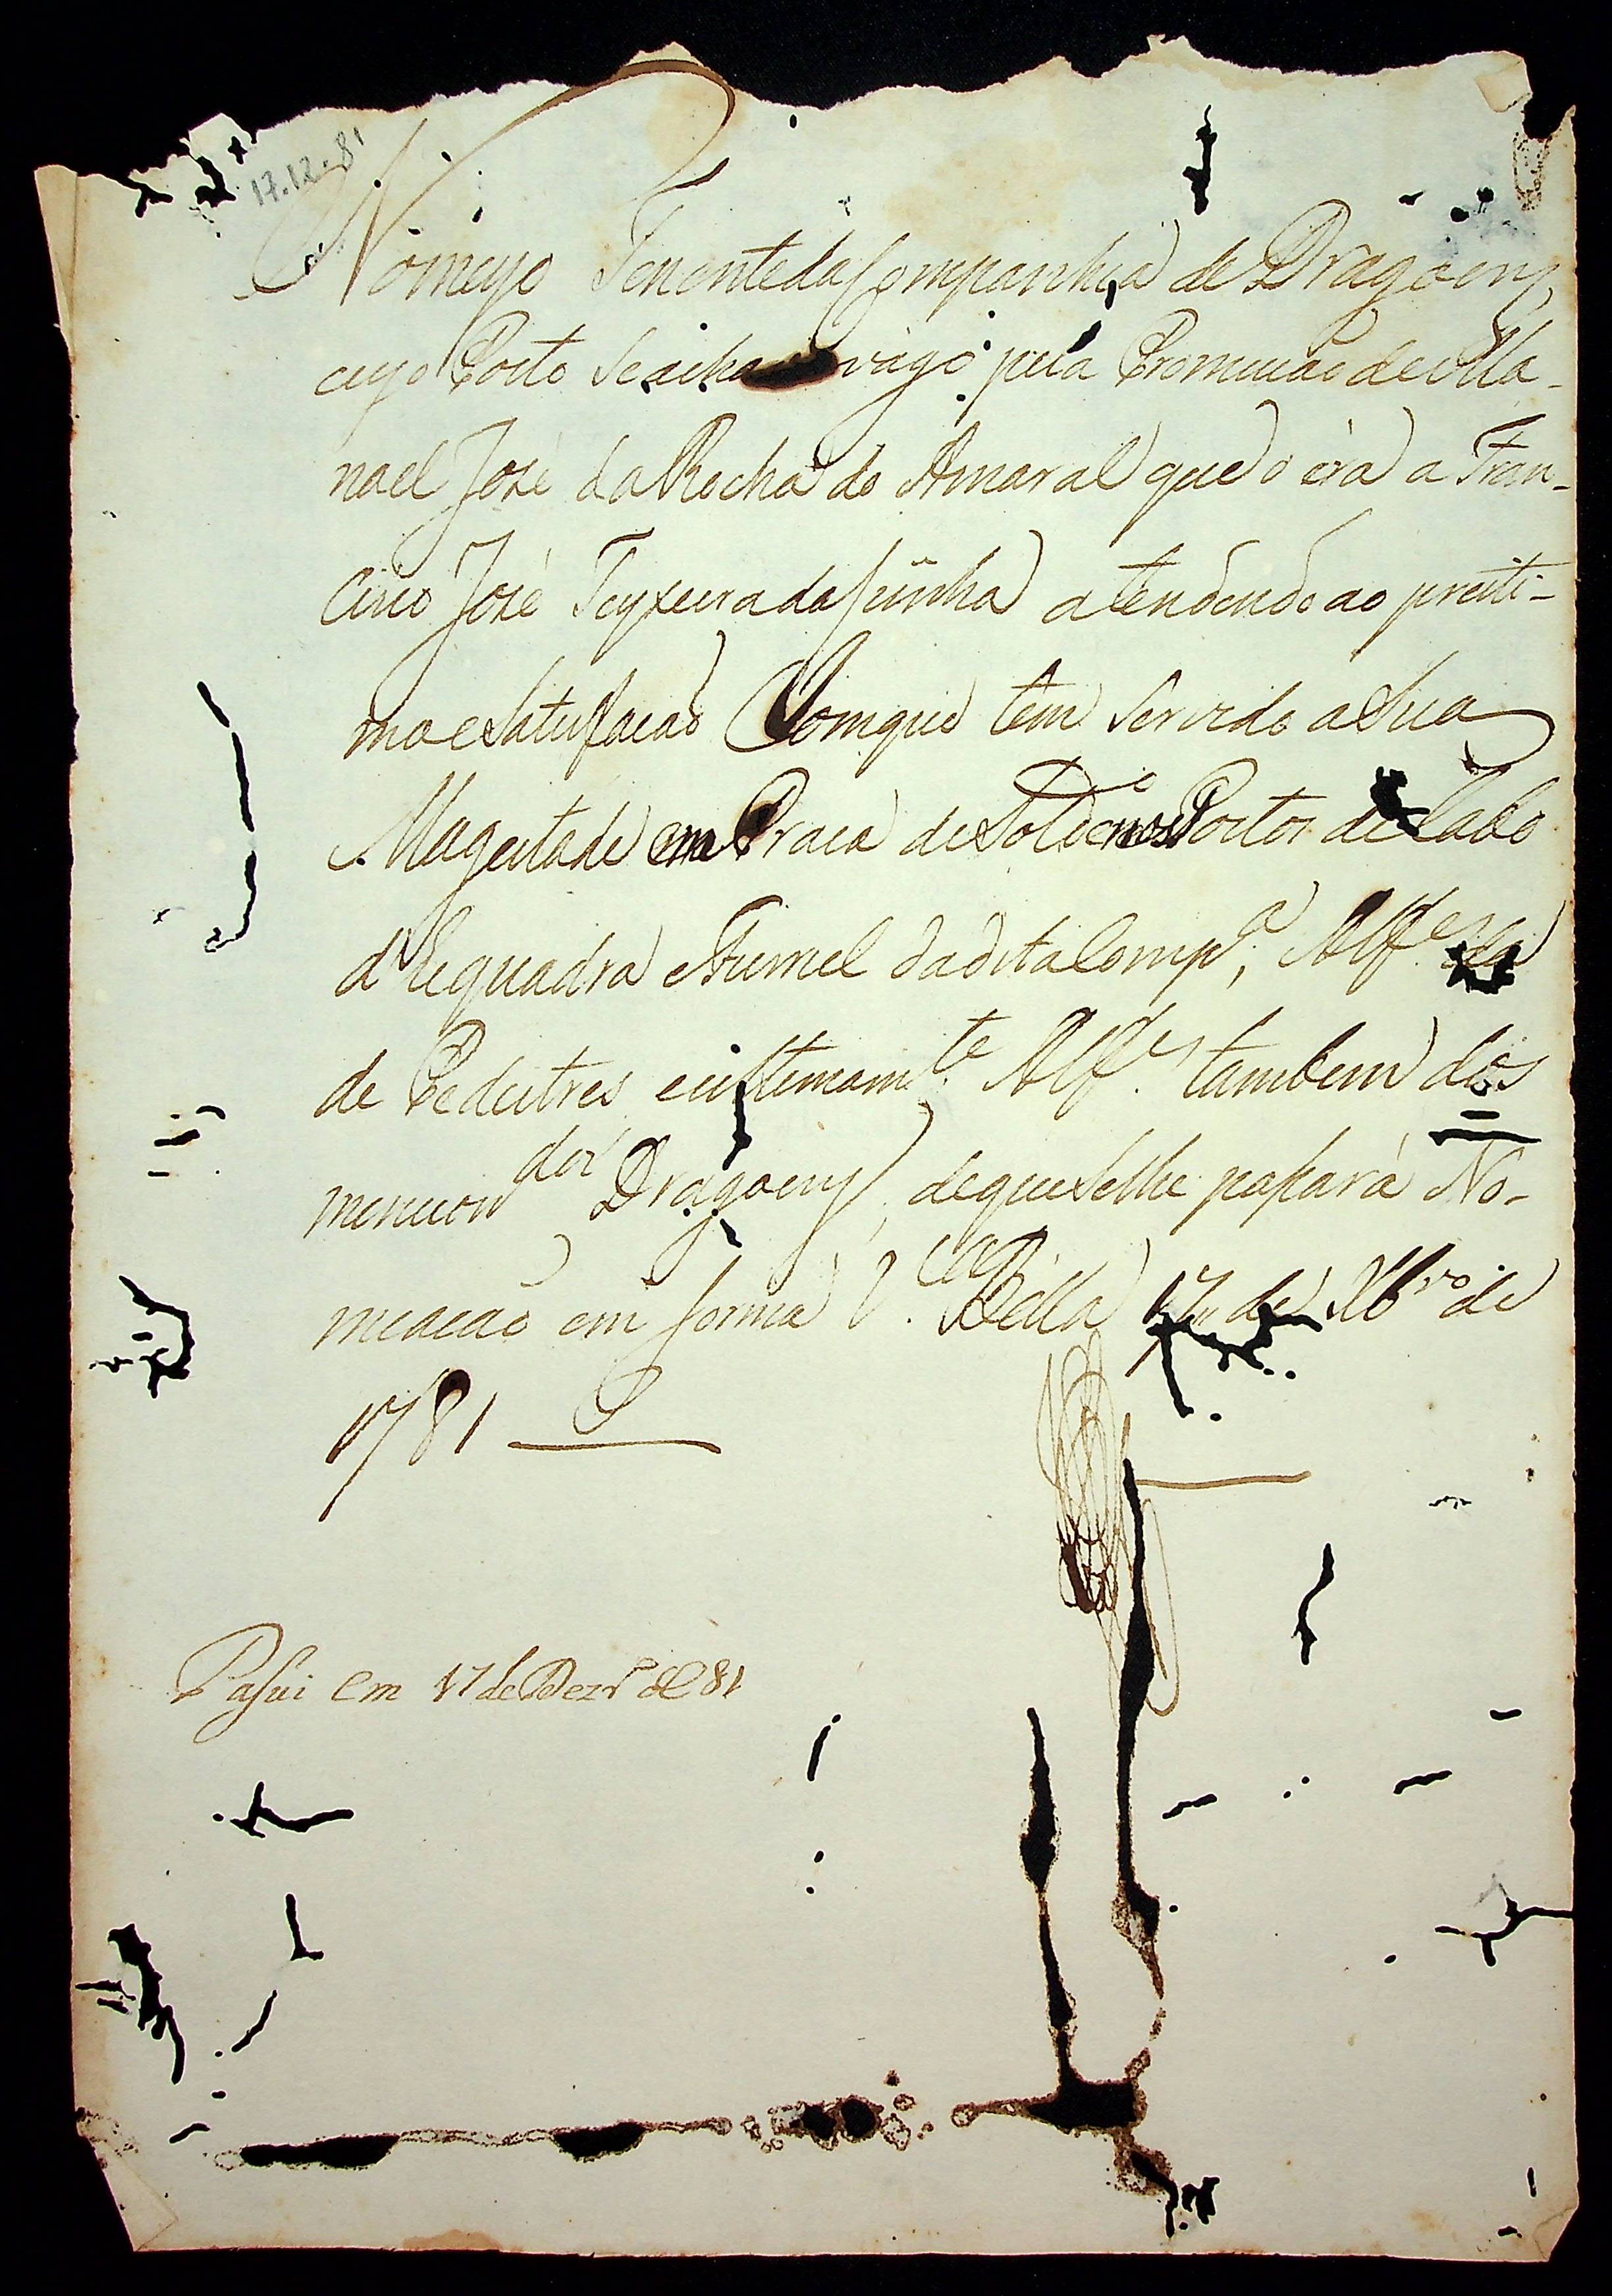 17.12.81
Nomeyo Tenente da Companhia de Dragoens,
cujo Posto se acha vago pela Promoução de Ma-
noel José da Rocha do Amaral que o éra a Fran-
cisco José Teyxeira da Cunha atendendo ao presti-
mo e satisfacaõ Com que tem servido a Sua
Magestade em Praca de Soldo nos Postos de Cabo
d'Esquadra e Furriel da dita Comp.a, Alf.es da
de Pedestres e ultimam.te Alf.es tambem dos
mencion.dos Dragoens, de que se lhe passará No-
meacaõ em forma V.a Bella 17 de Xbr.o de
1781
Passei em 17 de Dezr.o de 81